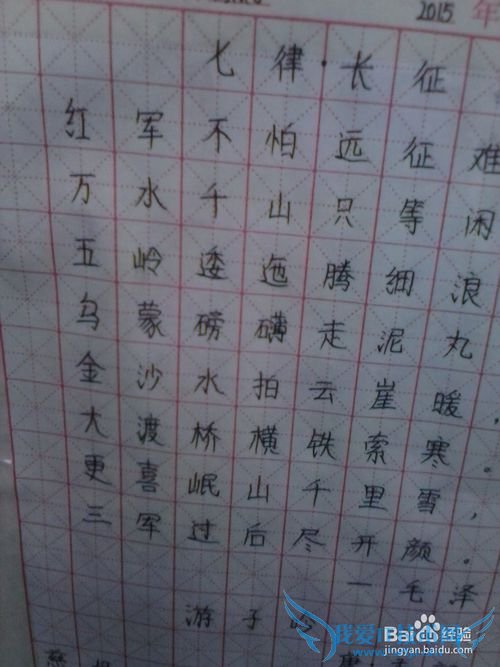 2015 年
七律·长征
红军不怕远征难
万水千山只等闲
五岭逶迤腾细浪
乌蒙磅礴走泥丸
金沙水拍云崖暖
大渡桥横铁索寒。
更喜岷山千里雪，
三军过后尽开颜。
一毛泽
游子吟
Baidu 经验
jingyan.baidu.com